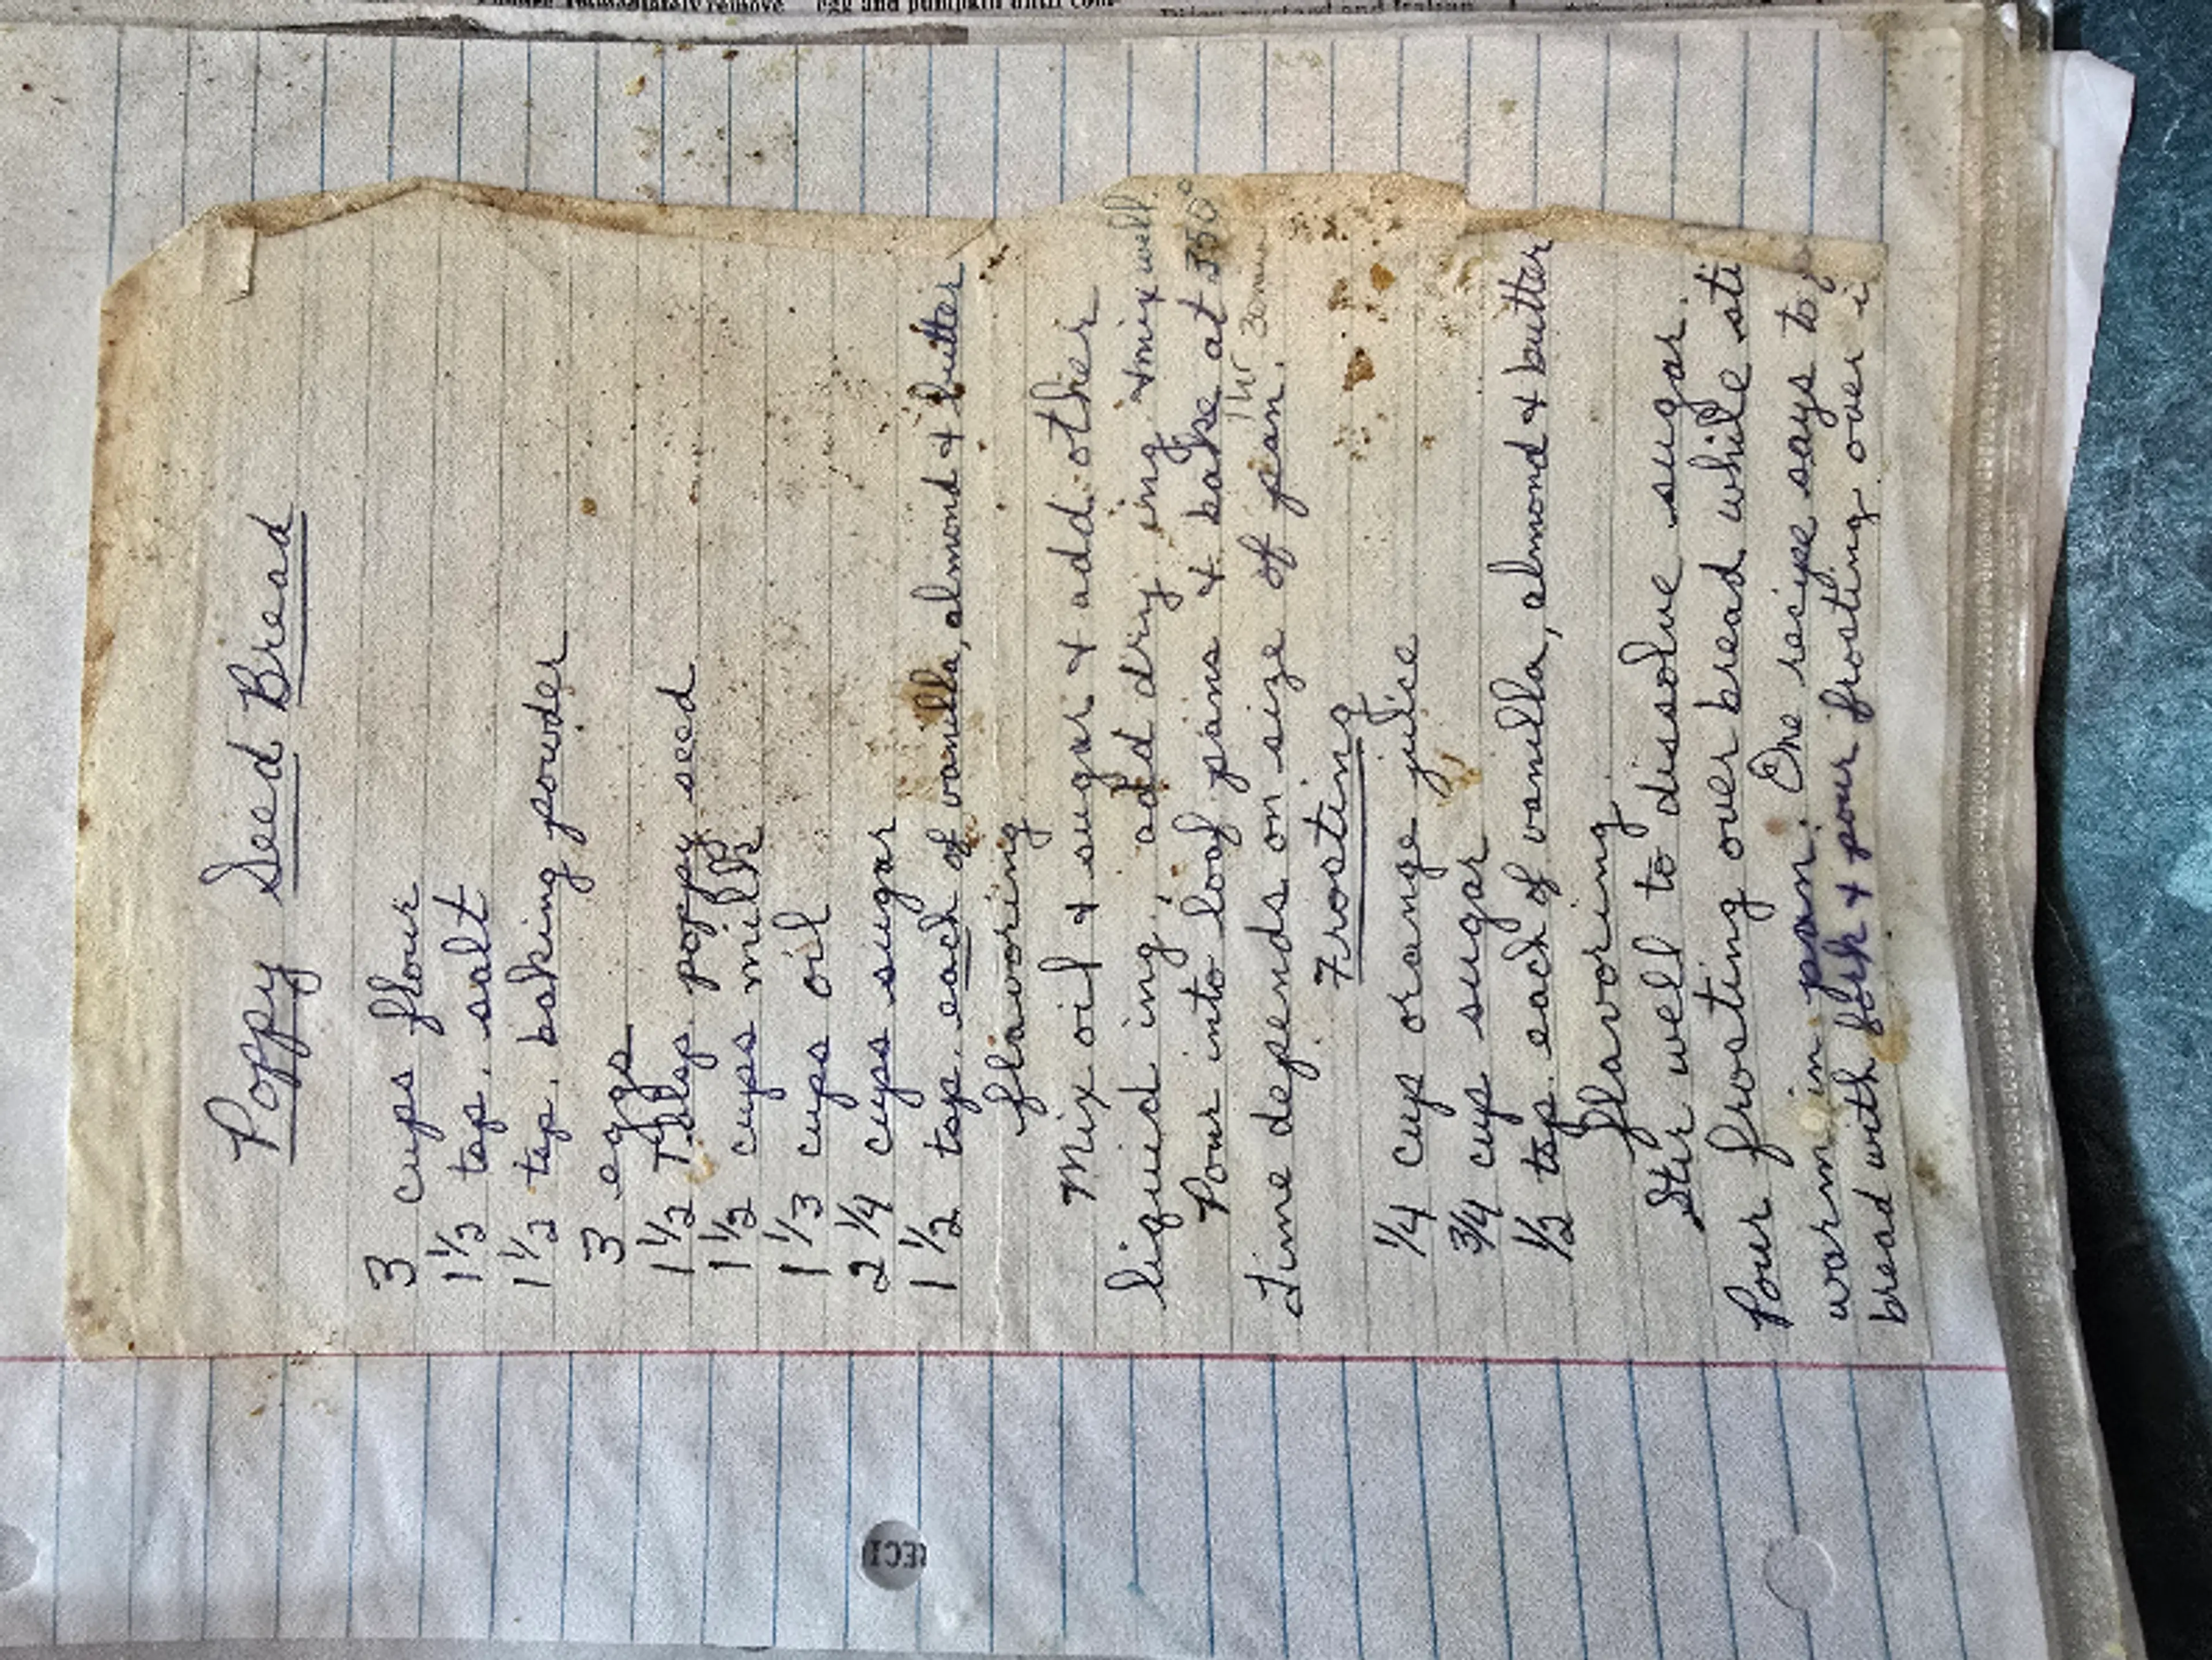 Poppy Seed Bread
3 cups flour
1 1/2 tsp. salt
1 1/2 tsp. baking powder
3 eggs
1 1/2 Tblsp. poppy seed
1 1/2 cups milk
1 1/3 cups oil
2 1/4 cups sugar
1 1/2 tsp. each of vanilla, almond & butter
flavoring
Mix oil & sugar & add other
liquid ing., add dry ing. & mix well.
Pour into loaf pans & bake at 350°
1 hr 30 min
Time depends on size of pan.
Frosting
1/4 cup orange juice
3/4 cup sugar
1/2 tsp. each of vanilla, almond & butter
flavoring
Stir well to dissolve sugar.
Pour frosting over bread while sti
warm in pan. One recipe says to
bread with fork & pour frosting over i
RECI
egg and pumpkin until com-
immediately remove
Dijon mustard and Italian